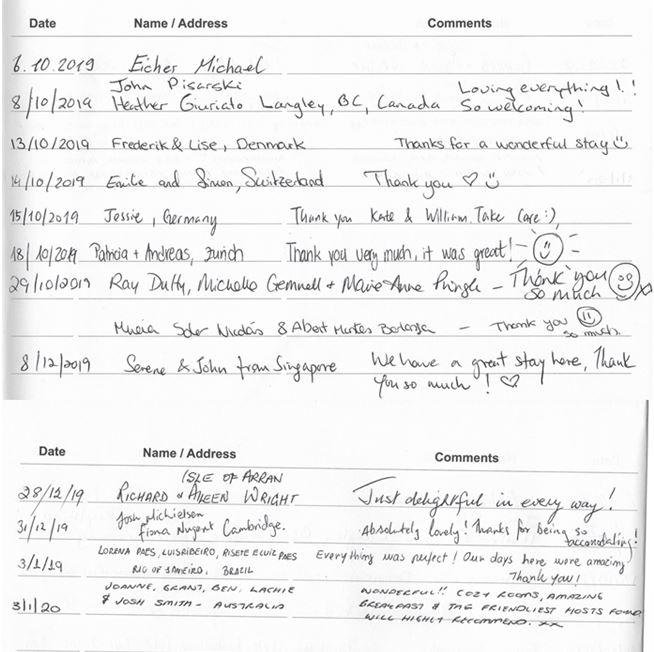 Date Name / Address Comments
6.10.2019 Eicher Michael
John Pisarski Loving everything!!
8/10/2019 Heather Giuriato Langley, BC, Canada So welcoming!
13/10/2019 Frederik & Lise, Denmark Thanks for a wonderful stay ☺
14/10/2019 Emilie and Simon, Switzerland Thank you ♡ ☺
15/10/2019 Jessie, Germany Thank you Kate & William. Take Care :)
18/10/2019 Patricia + Andreas, Zurich Thank you very much, it was great! - ☺
29/10/2019 Ray Duffy, Michelle Gemmell + Marie Anne - Thank you
so much ☺ x
Soler & Albert - Thank you ☺
so much.
8/12/2019 Serene & John from Singapore We have a great stay here, Thank
you so much! ♡
Date Name / Address Comments
ISLE OF ARRAN
28/12/19 RICHARD & AILEEN WRIGHT Just delightful in every way!
31/12/19 Josh Michielson Absolutely lovely! Thanks for being so
Fiona Nugent Cambridge. accomodating!
3/1/19 LORENA PAES, LUIS RIBEIRO, E LUIZ PAES Everything was perfect! Our days here were amazing
RIO DE JANEIRO, BRAZIL Thank you!
JOANNE, GRANT, BEN, LACHIE WONDERFUL!! COZY ROOMS, AMAZING
3/1/20 & JOSH SMITH - AUSTRALIA BREAKFAST & THE FRIENDLIEST HOSTS FOUND
WILL HIGHLY RECOMMEND. xx